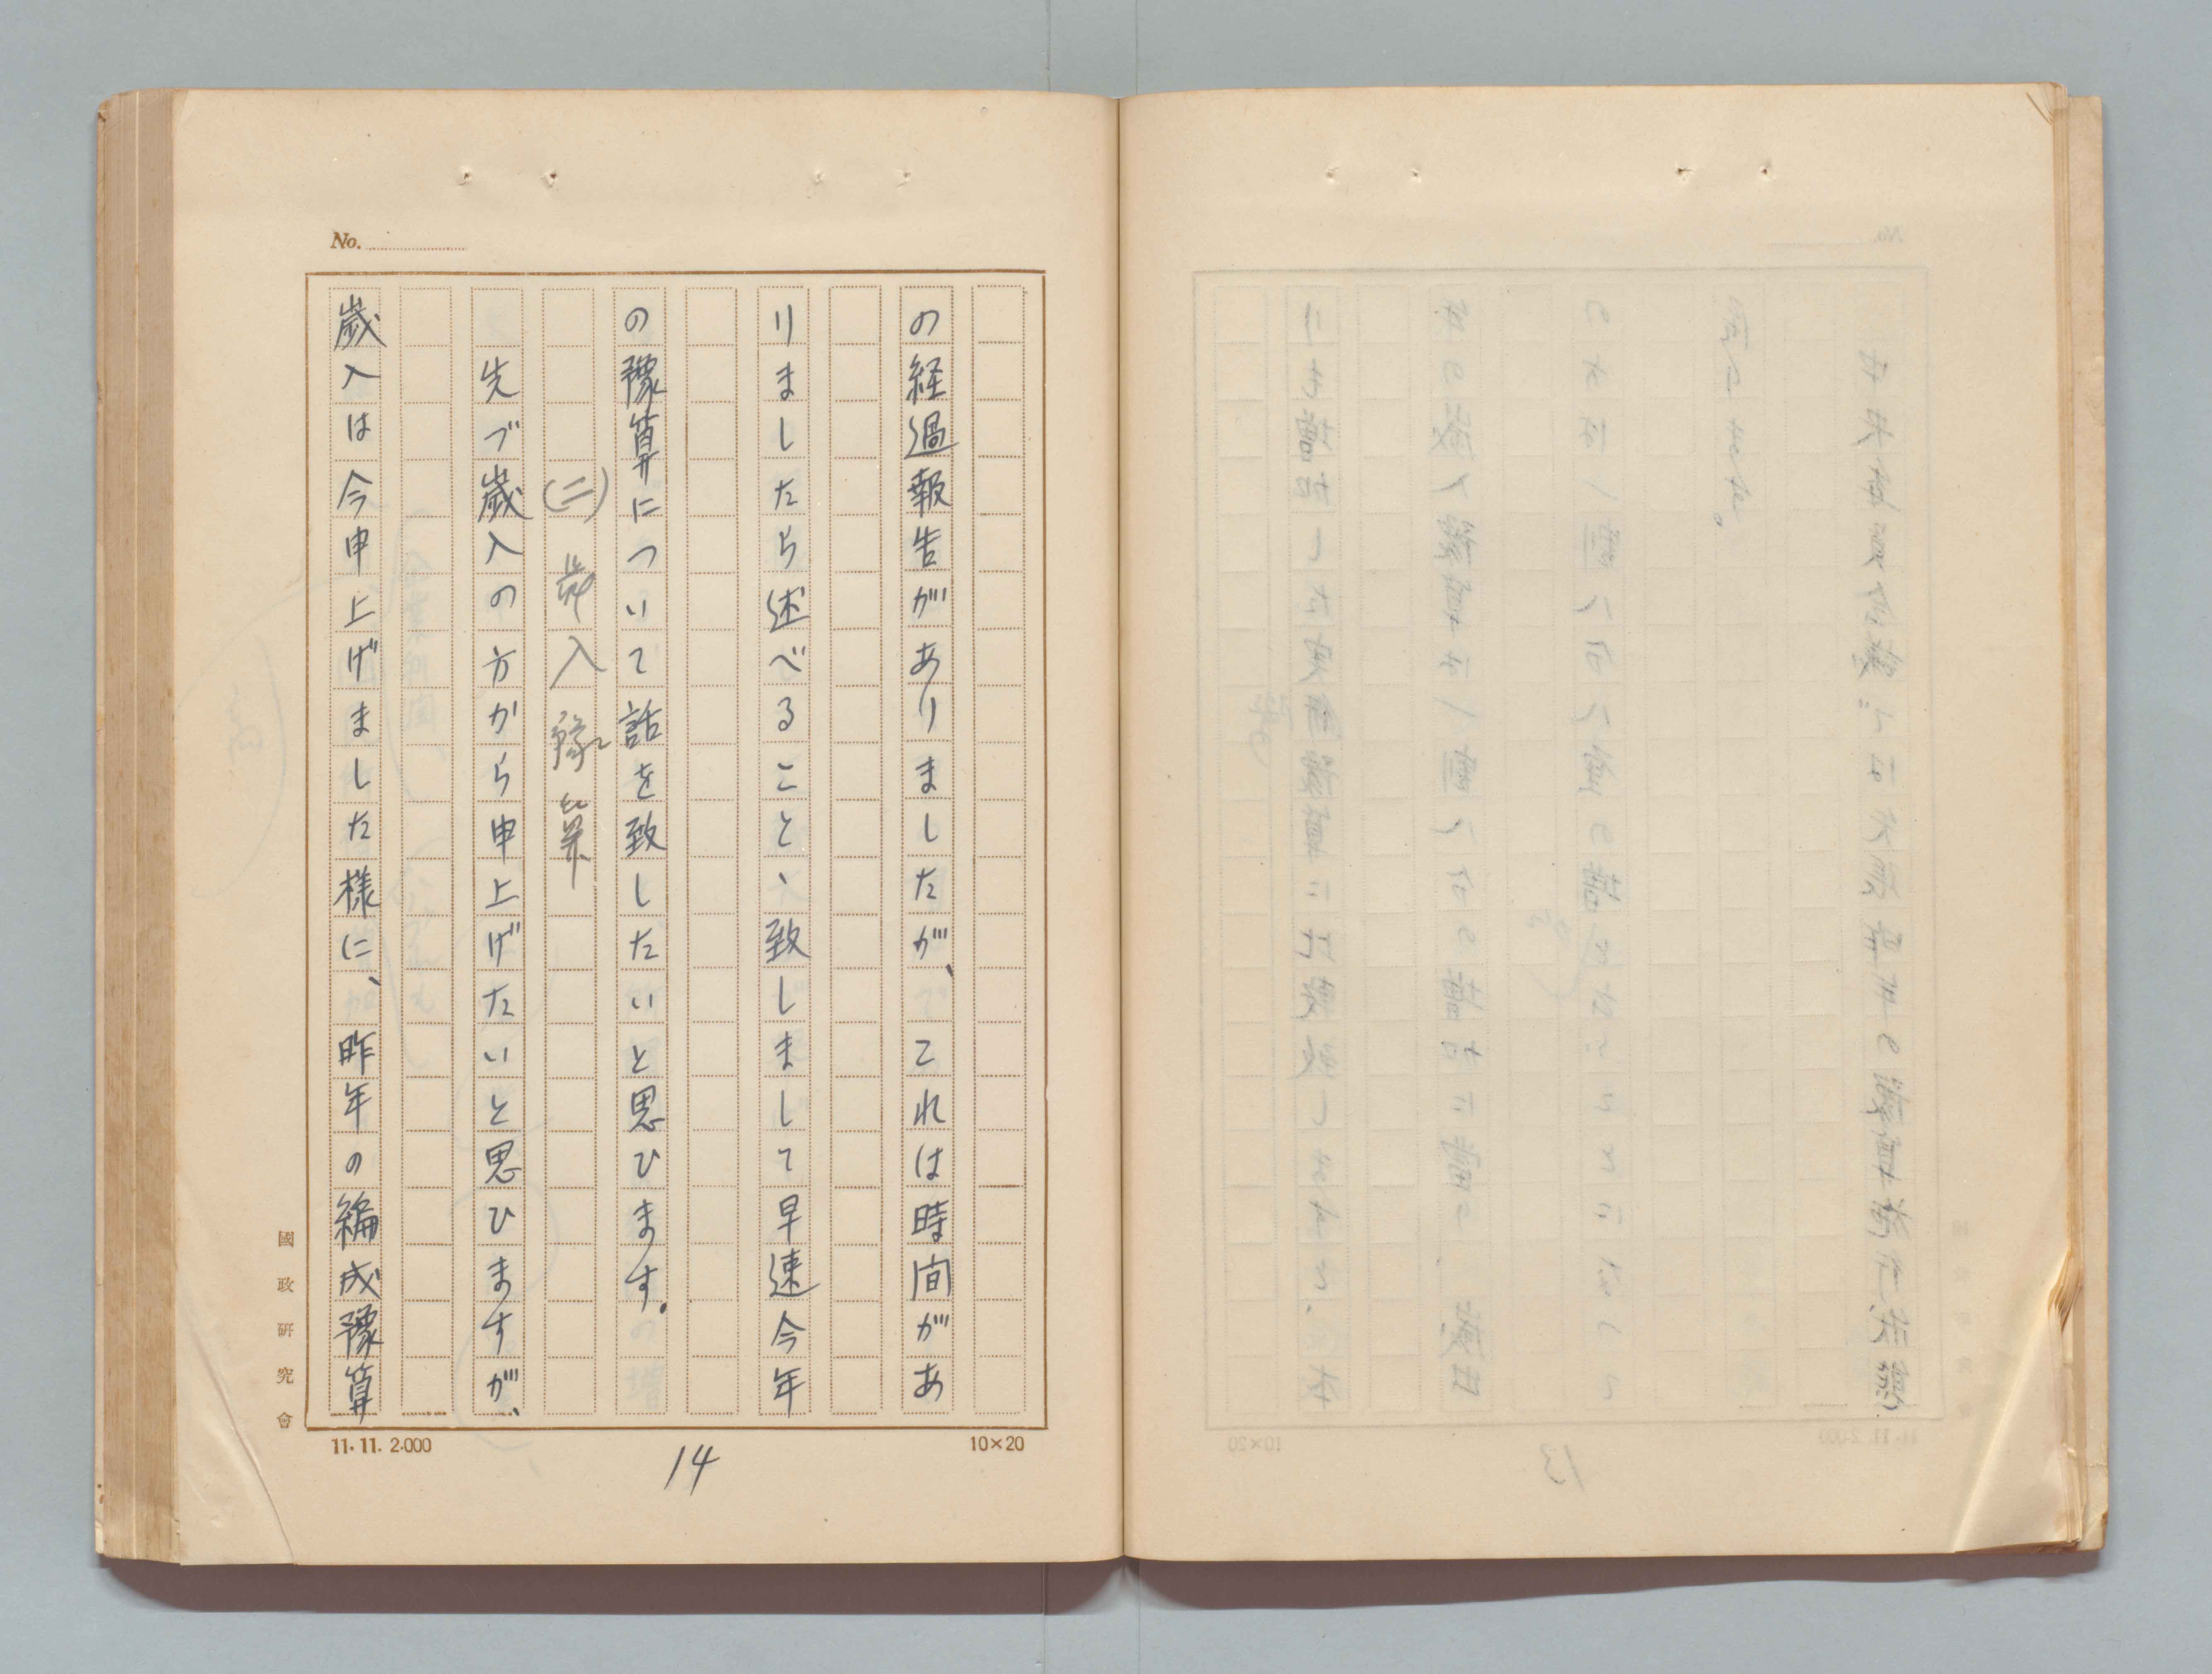 No.
の経過報告がありましたが、これは時間があ
りましたら述べること、致しまして早速今年
の豫算について話を致したいと思ひます。
(二)歳入豫算
先づ歳入の方から申上げたいと思ひますが、
歳入は今申上げました様に、昨年の編成豫算
國政研究會
10×20
14
11.11.2.000